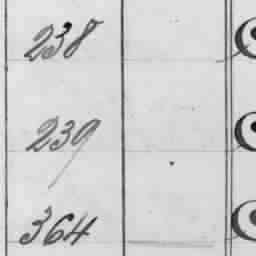 238
239
364